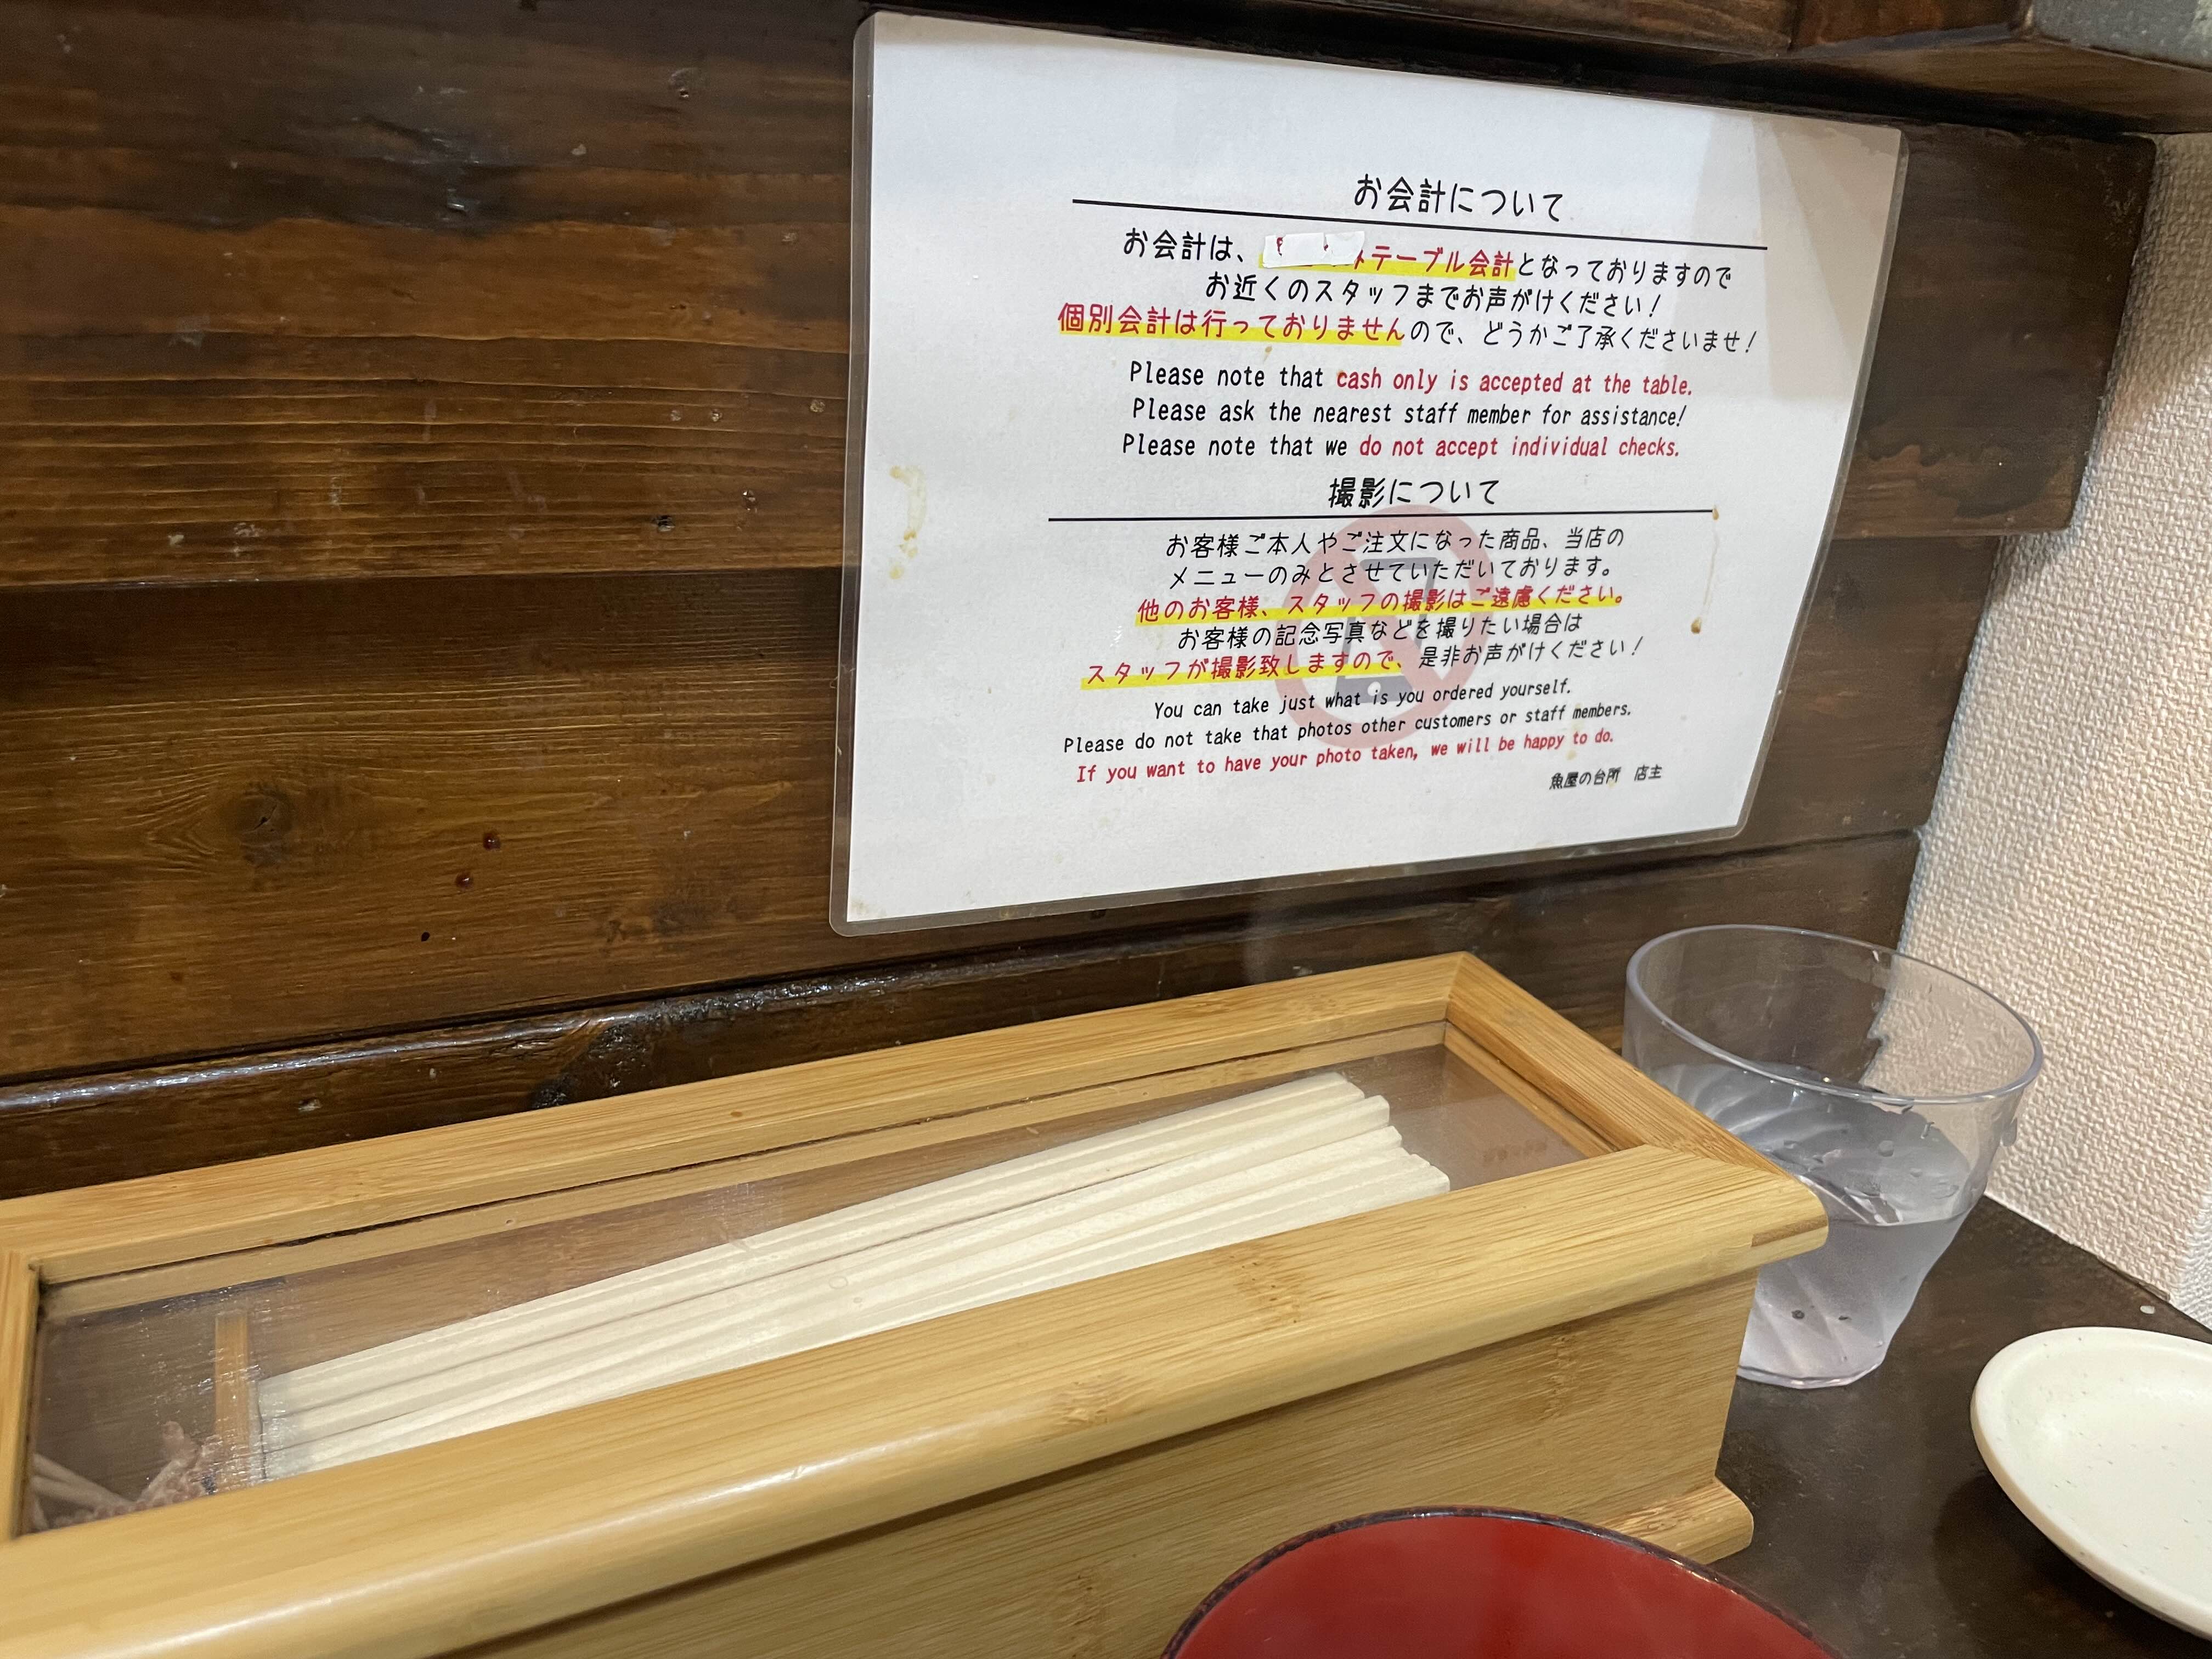 お会計について
お会計は、テーブル会計となっておりますので
お近くのスタッフまでお声がけください！
個別会計は行っておりませんので、どうかご了承くださいませ！
Please note that cash only is accepted at the table.
Please ask the nearest staff member for assistance!
Please note that we do not accept individual checks.
撮影について
お客様ご本人やご注文になった商品、当店の
メニューのみとさせていただいております。
他のお客様、スタッフの撮影はご遠慮ください。
お客様の記念写真などを撮りたい場合は
スタッフが撮影致しますので、是非お声がけください！
You can take just what is you ordered yourself.
Please do not take that photos other customers or staff members.
If you want to have your photo taken, we will be happy to do.
魚屋の台所　店主